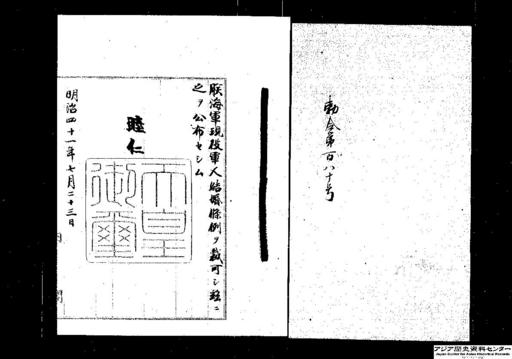 勅令第百八十号
朕海軍現役軍人結婚條例ヲ裁可シ玆ニ
之ヲ公布セシム
睦仁
天皇御璽
明治四十一年七月二十三日
内閣
アジア歴史資料センター
Japan Center for Asian Historical Records